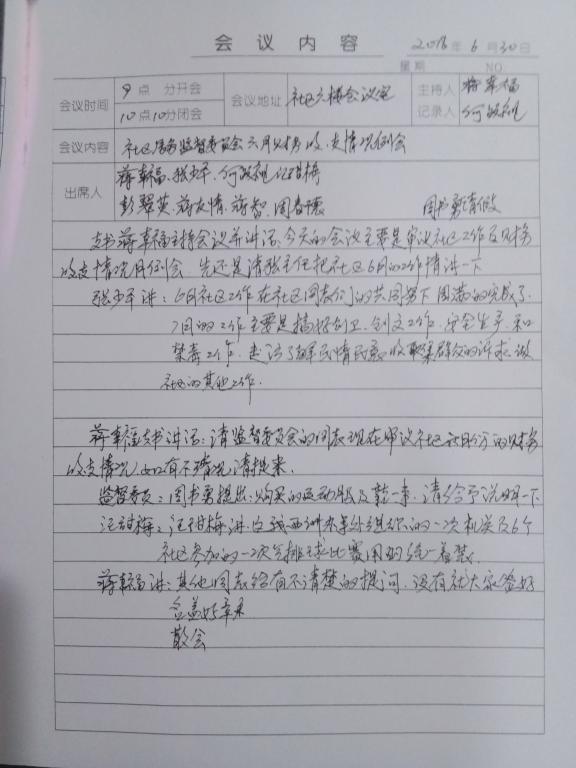 会议内容
2018年6月30日
星期 NO.
会议时间
9点 分开会
10点10分闭会
会议地址
社区六楼会议室
主持人
蒋幸福
记录人
会议内容
社区居务监督委员会六月财务收、支情况例会
出席人
蒋幸福、张少军、汪甜梅
彭翠英、蒋友情、蒋智、周春 周书勇请假
支书蒋幸福主持会议并讲话，今天的会议主要是审议社区工作及财务
收支情况月例会，先还是请张主任把社区6月的工作情讲一下
张少军讲：6月社区工作在社区同志们的共同努下圆满的完成了，
7月的工作主要是搞好创卫、创文工作、安全生产、和
禁毒工作，走访了解民情民意，收取集群众的诉求，做
社区的其他工作。
蒋幸福支书讲话：请监督委员会的同志现在审议社区 月份的财务
收支情况，如有不情况请提来。
监督委友：周书勇提出：购买的运动服及鞋一事，请给予说明一下
汪甜梅：汪甜梅讲：办事处组织的一次机关及6个
社区参加的一次气排球比赛用的统一着装。
蒋幸福讲：其他同志给有不清楚的提问，没有就大家签好
合盖好章来
散会